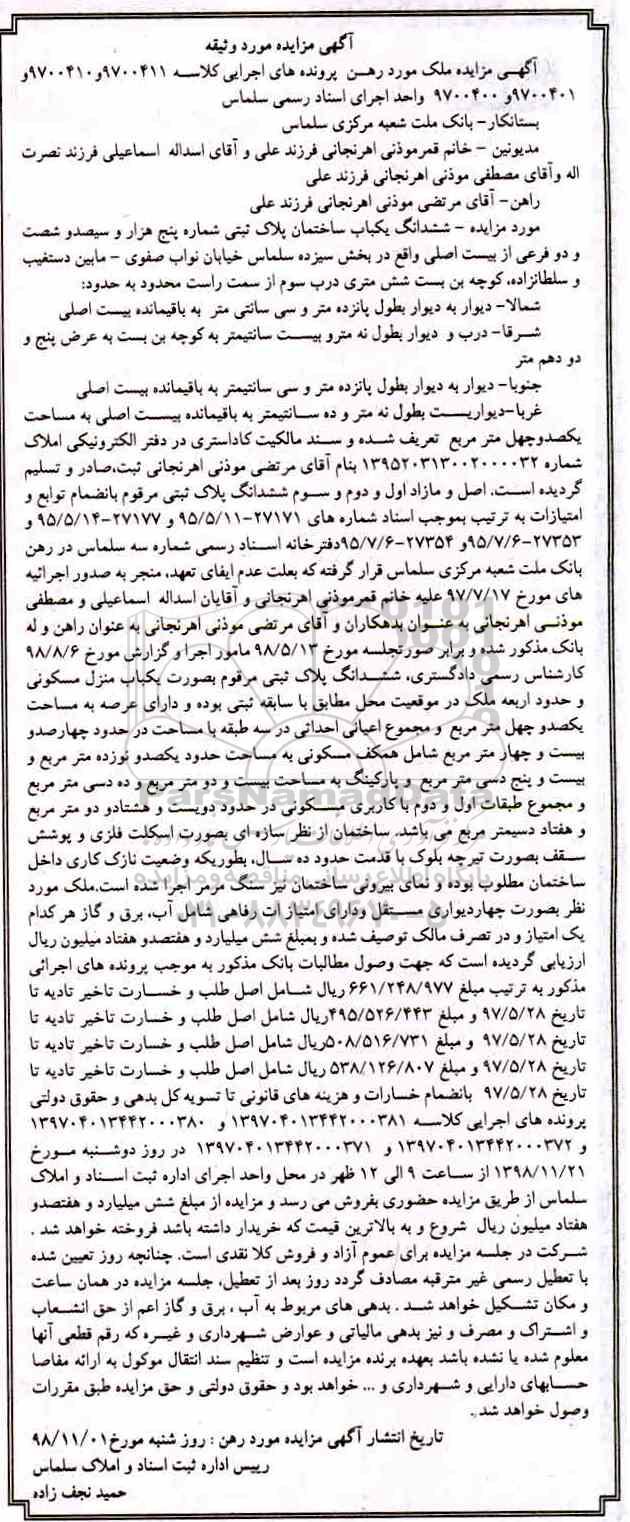 آگهی مزایده مورد وثیقه
آگهـی مزایده ملک مورد رهـن پرونده های اجرایی کلاسـه ۹۷۰۰۴۱۱و۹۷۰۰۴۱۰و
۹۷۰۰۴۰۱و ۹۷۰۰۴۰۰ واحد اجرای اسناد رسمی سلماس
بستانکار- بانک ملت شعبه مرکزی سلماس
مدیونین – خانم قمرموذنی اهرنجانی فرزند علی و آقای اسداله اسماعیلی فرزند نصرت
اله وآقای مصطفی موذنی اهرنجانی فرزند علی
راهن- آقای مرتضی موذنی اهرنجانی فرزند علی
مورد مزایده – ششدانگ یکباب ساختمان پلاک ثبتی شماره پنج هزار و سیصدو شصت
و دو فرعی از بیست اصلی واقع در بخش سیزده سلماس خیابان نواب صفوی – مابین دستغیب
و سلطانزاده، کوچه بن بست شش متری درب سوم از سمت راست محدود به حدود:
شمالا- دیوار به دیوار بطول پانزده متر و سی سانتی متر به باقیمانده بیست اصلی
شـرقا- درب و دیوار بطول نه مترو بیسـت سانتیمتر به کوچه بن بست به عرض پنج و
دو دهم متر
جنوبا- دیوار به دیوار بطول پانزده متر و سی سانتیمتر به باقیمانده بیست اصلی
غربا-دیواریسـت بطول نه متر و ده سـانتیمتر به باقیمانده بیسـت اصلی به مساحت
یکصدوچهل متر مربع تعریف شـده و سـند مالکیت کاداستری در دفتر الکترونیکی املاک
شماره ۱۳۹۵۲۰۳۱۳۰۰۲۰۰۰۰۳۲ بنام آقای مرتضی موذنی اهرنجانی ثبت،صادر و تسلیم
گردیده اسـت. اصل و مازاد اول و دوم و سـوم ششدانگ پلاک ثبتی مرقوم بانضمام توابع و
امتیازات به ترتیب بموجب اسناد شماره های ۲۷۱۷۱-۹۵/۵/۱۱ و ۲۷۱۷۷-۹۵/۵/۱۴ و
۲۷۳۵۳-۹۵/۷/۶و ۲۷۳۵۴-۹۵/۷/۶دفترخانه اسـناد رسمی شماره سه سلماس در رهن
بانک ملت شعبه مرکزی سلماس قرار گرفته که بعلت عدم ایفای تعهد، منجر به صدور اجرائیه
های مورخ ۹۷/۷/۱۷ علیه خانم قمرموذنی اهرنجانی و آقایان اسداله اسماعیلی و مصطفی
موذنـی اهرنجانی به عنـوان بدهکاران و آقای مرتضی موذنی اهرنجانی به عنوان راهن و له
بانک مذکور شده و برابر صورتجلسه مورخ ۹۸/۵/۱۳ مامور اجرا و گزارش مورخ ۹۸/۸/۶
کارشناس رسمی دادگستری، ششـدانگ پلاک ثبتی مرقوم بصورت یکباب منزل مسکونی
و حدود اربعه ملک در موقعیت محل مطابق با سابقه ثبتی بوده و دارای عرصه به مساحت
یکصدو چهل متر مربع و مجموع اعیانی احداثی در سه طبقه با مساحت در حدود چهارصدو
بیست و چهار متر مربع شامل همکف مسکونی به مساحت حدود یکصدو نوزده متر مربع و
بیست و پنج دسی متر مربع و پارکینگ به مساحت بیست و دو متر مربع و ده دسی متر مربع
و مجموع طبقات اول و دوم با کاربری مسکونی در حدود دویست و هشتادو دو متر مربع
و هفتاد دسیمتر مربع می باشد. ساختمان از نظر سازه ای بصورت اسکلت فلزی و پوشش
سـقف بصورت تیرچه بلوک با قدمت حدود ده سـال، بطوریکه وضعیت نازک کاری داخل
ساختمان مطلوب بوده و نمای بیرونی ساختمان نیز سنگ مرمر اجرا شده است.ملک مورد
نظر بصورت چهاردیواری مسـتقل ودارای امتیاز ات رفاهی شامل آب، برق و گاز هر کدام
یک امتیاز و در تصرف مالک توصیف شده و بمبلغ شش میلیارد و هفتصدو هفتاد میلیون ریال
ارزیابی گردیده است که جهت وصول مطالبات بانک مذکور به موجب پرونده های اجرائی
مذکور به ترتیب مبلغ ۶۶۱/۲۴۸/۹۷۷ ریال شـامل اصل طلب و خسـارت تاخیر تادیه تا
تاریخ ۹۷/۵/۲۸ و مبلغ ۴۹۵/۵۲۶/۴۴۳ریال شامل اصل طلب و خسارت تاخیر تادیه تا
تاریخ ۹۷/۵/۲۸ و مبلغ ۵۰۸/۵۱۶/۷۳۱ریال شامل اصل طلب و خسارت تاخیر تادیه تا
تاریخ ۹۷/۵/۲۸ و مبلغ ۵۳۸/۱۲۶/۸۰۷ ریال شامل اصل طلب و خسارت تاخیر تادیه تا
تاریخ ۹۷/۵/۲۸ بانضمام خسارات و هزینه های قانونی تا تسویه کل بدهی و حقوق دولتی
پرونده های اجرایی کلاسـه ۱۳۹۷۰۴۰۱۳۴۴۲۰۰۰۳۸۱ و ۱۳۹۷۰۴۰۱۳۴۴۲۰۰۰۳۸۰
و ۱۳۹۷۰۴۰۱۳۴۴۲۰۰۰۳۷۲ و ۱۳۹۷۰۴۰۱۳۴۴۲۰۰۰۳۷۱ در روز دوشـنبه مـورخ
۱۳۹۸/۱۱/۲۱ از سـاعت ۹ الی ۱۲ ظهر در محل واحد اجرای اداره ثبت اسـناد و املاک
سلماس از طریق مزایده حضوری بفروش می رسد و مزایده از مبلغ شش میلیارد و هفتصدو
هفتاد میلیون ریال شروع و به بالاترین قیمت که خریدار داشته باشد فروخته خواهد شد .
شـرکت در جلسه مزایده برای عموم آزاد و فروش کلا نقدی است. چنانچه روز تعیین شده
با تعطیل رسمی غیر مترقبه مصادف گردد روز بعد از تعطیل، جلسه مزایده در همان ساعت
و مکان تشـکیل خواهد شـد . بدهی های مربوط به آب ، برق و گاز اعم از حق انشـعاب
و اشـتراک و مصرف و نیز بدهی مالیاتی و عوارض شـهرداری و غیـره که رقم قطعی آنها
معلوم شده یا نشده باشد بعهده برنده مزایده است و تنظیم سند انتقال موکول به ارائه مفاصا
حسـابهای دارایی و شـهرداری و ... خواهد بود و حقوق دولتی و حق مزایده طبق مقررات
وصول خواهد شد .
تاریخ انتشار آگهی مزایده مورد رهن : روز شنبه مورخ۹۸/۱۱/۰۱
رییس اداره ثبت اسناد و املاک سلماس
حمید نجف زاده
ParsNamadData
پایگاه اطلاع رسانی مناقصه و مزایده
۰۲۱-۸۸۳۴۹۶۷۰-۵